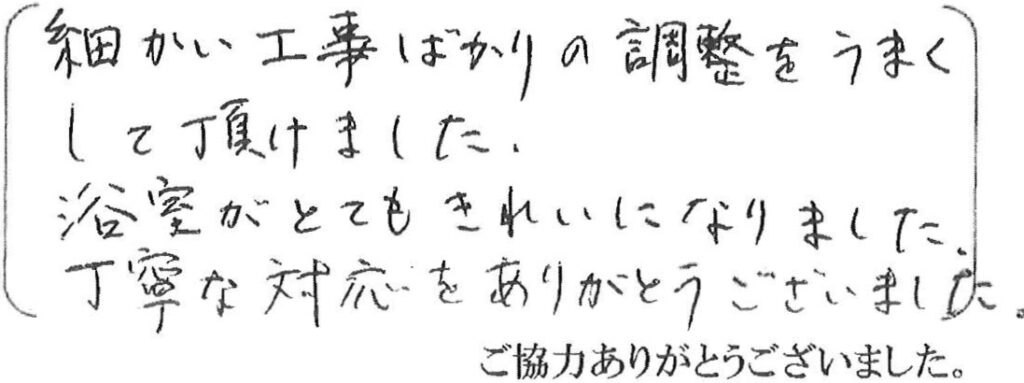 細かい工事ばかりの調整をうまく
して頂けました.
浴室がとてもきれいになりました.
丁寧な対応をありがとうございました。
ご協力ありがとうございました。